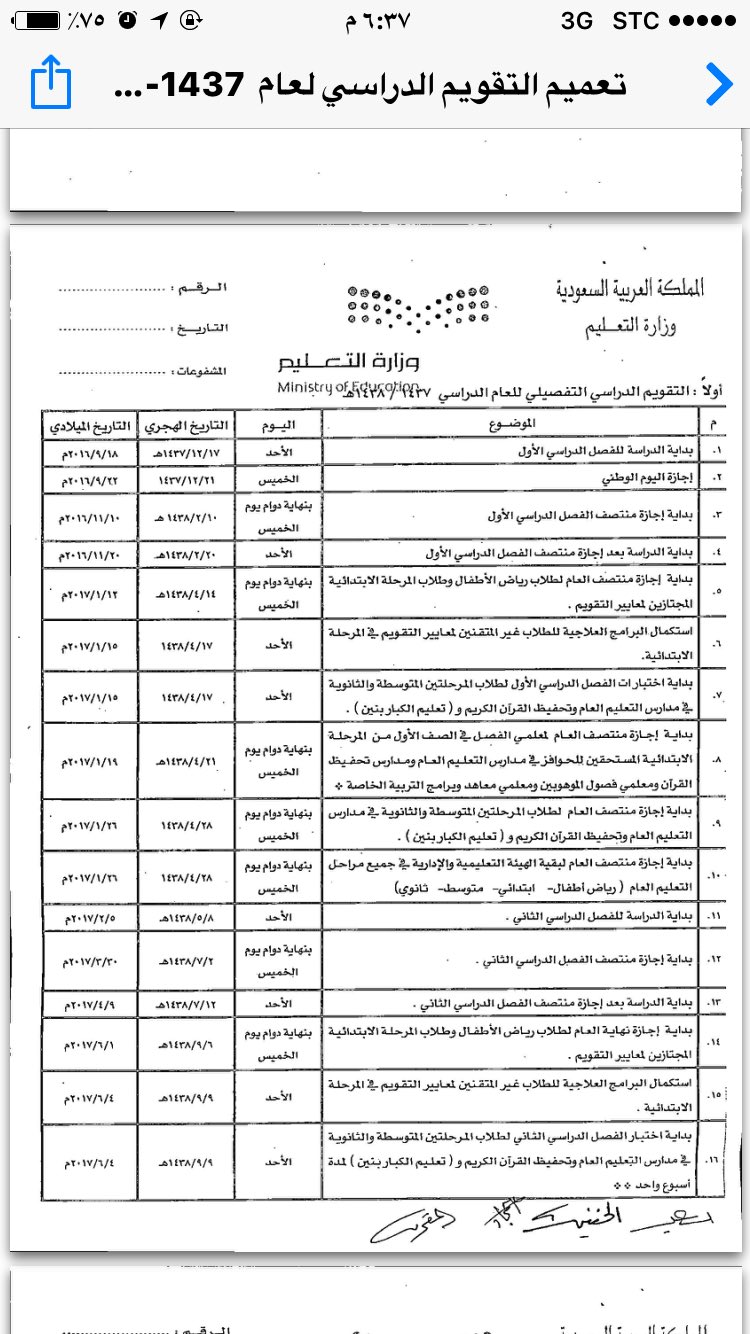 ٪٧٥ ٦:٣٧ م 3G STC
تعميم التقويم الدراسي لعام 1437-...
المملكة العربية السعودية
وزارة التعليم
وزارة التعليم
Ministry of Education
الرقم :
التاريخ :
المشفوعات :
أولاً : التقويم الدراسي التفصيلي للعام الدراسي ١٤٣٧ / ١٤٣٨هـ
م الموضوع اليوم التاريخ الهجري التاريخ الميلادي
١. بداية الدراسة للفصل الدراسي الأول الأحد ١٤٣٧/١٢/١٧هـ ٢٠١٦/٩/١٨م
٢. إجازة اليوم الوطني الخميس ١٤٣٧/١٢/٢١ ٢٠١٦/٩/٢٢م
٣. بداية إجازة منتصف الفصل الدراسي الأول بنهاية دوام يوم الخميس ١٤٣٨/٢/١٠ هـ ٢٠١٦/١١/١٠م
٤. بداية الدراسة بعد إجازة منتصف الفصل الدراسي الأول الأحد ١٤٣٨/٢/٢٠ هـ ٢٠١٦/١١/٢٠م
٥. بداية إجازة منتصف العام لطلاب رياض الأطفال وطلاب المرحلة الابتدائية
المجتازين لمعايير التقويم . بنهاية دوام يوم الخميس ١٤٣٨/٤/١٤هـ ٢٠١٧/١/١٢م
٦. استكمال البرامج العلاجية للطلاب غير المتقنين لمعايير التقويم في المرحلة
الابتدائية. الأحد ١٤٣٨/٤/١٧ ٢٠١٧/١/١٥م
٧. بداية اختبارات الفصل الدراسي الأول لطلاب المرحلتين المتوسطة والثانوية
في مدارس التعليم العام وتحفيظ القرآن الكريم و ( تعليم الكبار بنين ) . الأحد ١٤٣٨/٤/١٧ ٢٠١٧/١/١٥م
٨. بداية إجازة منتصف العام لمعلمي الفصل في الصف الأول من المرحلة
الابتدائية المستحقين للحوافز في مدارس التعليم العام ومدارس تحفيظ
القرآن ومعلمي فصول الموهوبين ومعلمي معاهد وبرامج التربية الخاصة * بنهاية دوام يوم الخميس ١٤٣٨/٤/٢١هـ ٢٠١٧/١/١٩م
٩. بداية إجازة منتصف العام لطلاب المرحلتين المتوسطة والثانوية في مدارس
التعليم العام وتحفيظ القرآن الكريم و ( تعليم الكبار بنين ) . بنهاية دوام يوم الخميس ١٤٣٨/٤/٢٨ ٢٠١٧/١/٢٦م
١٠. بداية إجازة منتصف العام لبقية الهيئة التعليمية والإدارية في جميع مراحل
التعليم العام ( رياض أطفال- ابتدائي- متوسط- ثانوي) بنهاية دوام يوم الخميس ١٤٣٨/٤/٢٨ ٢٠١٧/١/٢٦م
١١. بداية الدراسة للفصل الدراسي الثاني . الأحد ١٤٣٨/٥/٨هـ ٢٠١٧/٢/٥م
١٢. بداية إجازة منتصف الفصل الدراسي الثاني . بنهاية دوام يوم الخميس ١٤٣٨/٧/٢هـ ٢٠١٧/٣/٣٠م
١٣. بداية الدراسة بعد إجازة منتصف الفصل الدراسي الثاني . الأحد ١٤٣٨/٧/١٢هـ ٢٠١٧/٤/٩م
١٤. بداية إجازة نهاية العام لطلاب رياض الأطفال وطلاب المرحلة الابتدائية
المجتازين لمعايير التقويم . بنهاية دوام يوم الخميس ١٤٣٨/٩/٦هـ ٢٠١٧/٦/١م
١٥. استكمال البرامج العلاجية للطلاب غير المتقنين لمعايير التقويم في المرحلة
الابتدائية . الأحد ١٤٣٨/٩/٩هـ ٢٠١٧/٦/٤م
١٦. بداية اختبار الفصل الدراسي الثاني لطلاب المرحلتين المتوسطة والثانوية
في مدارس التعليم العام وتحفيظ القرآن الكريم و ( تعليم الكبار بنين ) لمدة
أسبوع واحد ** الأحد ١٤٣٨/٩/٩هـ ٢٠١٧/٦/٤م
الرقم :
المملكة العربية السعودية